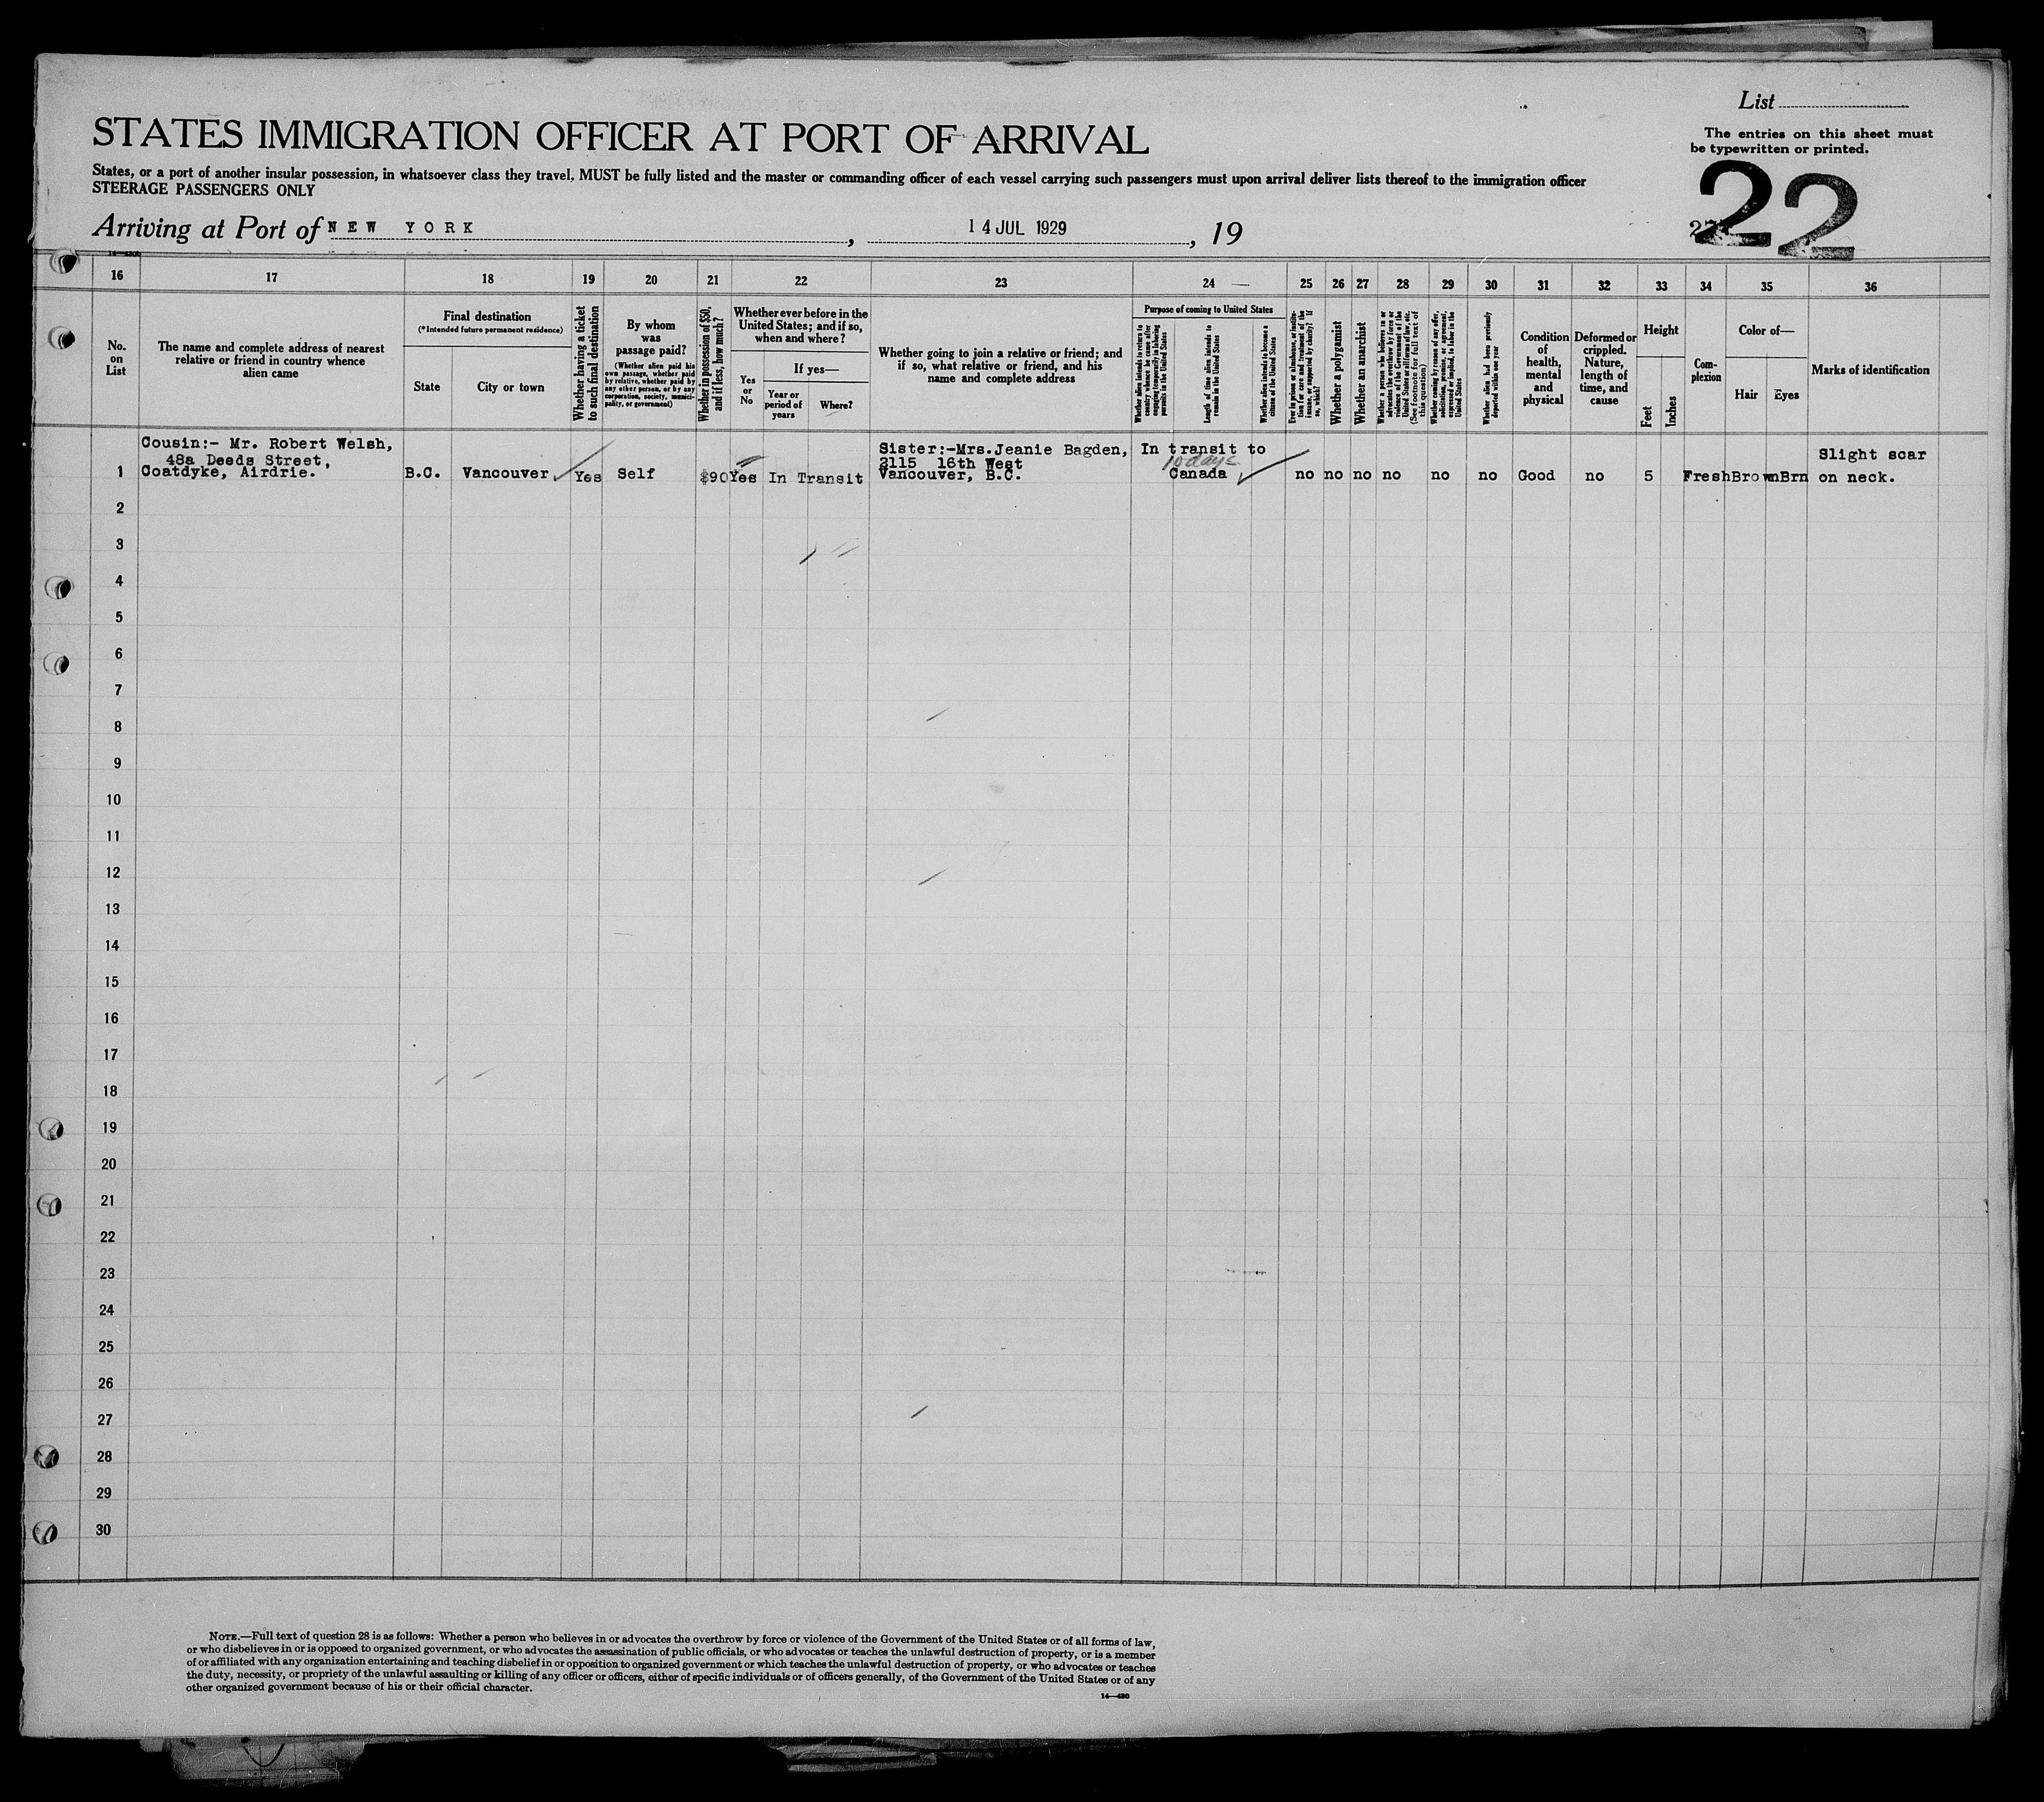 List
STATES IMMIGRATION OFFICER AT PORT OF ARRIVAL
The entries on this sheet must
be typewritten or printed.
States, or a port of another insular possession, in whatsoever class they travel, MUST be fully listed and the master or commanding officer of each vessel carrying such passengers must upon arrival deliver lists thereof to the immigration officer
STEERAGE PASSENGERS ONLY
22
Arriving at Port of NEW YORK, 14 JUL 1929, 19
16 17 18 19 20 21 22 23 24 25 26 27 28 29 30 31 32 33 34 35 36
No.
on
List
The name and complete address of nearest
relative or friend in country whence
alien came
Final destination
(*Intended future permanent residence)
State
City or town
Whether having a ticket
to such final destination
By whom
was
passage paid?
(Whether alien paid his
own passage, whether paid
by relative, whether paid by
any other person, or by any
corporation, society, munici-
pality, or government)
Whether in possession of $50,
and if less, how much?
Whether ever before in the
United States; and if so,
when and where?
Yes
or
No
If yes—
Year or
period of
years
Where?
Whether going to join a relative or friend; and
if so, what relative or friend, and his
name and complete address
Purpose of coming to United States
Whether alien intends to return to
country whence he came after
engaging temporarily in laboring
pursuits in the United States
Length of time alien intends to
remain in the United States
Whether alien intends to become a
citizen of the United States
Ever in prison or almshouse, or institu-
tion for care and treatment of the
insane, or supported by charity? If
so, which?
Whether a polygamist
Whether an anarchist
Whether a person who believes in or
advocates the overthrow by force or
violence of the Government of the
United States or all forms of law, etc.
(See footnote for full text of
this question)
Whether coming by reason of any offer,
solicitation, promise, or agreement,
expressed or implied, to labor in the
United States
Whether alien had been previously
deported within one year
Condition
of
health,
mental
and
physical
Deformed or
crippled.
Nature,
length of
time, and
cause
Height
Feet
Inches
Com-
plexion
Color of—
Hair
Eyes
Marks of identification
1
Cousin:- Mr. Robert Welsh,
48a Deeds Street,
Coatdyke, Airdrie.
B.C. Vancouver Yes Self $90 Yes In Transit
Sister:-Mrs.Jeanie Bagden,
2115 16th West
Vancouver, B.C.
In transit to
10 days
Canada
no no no no no no Good no 5 Fresh Brown Brn
Slight scar
on neck.
2
3
4
5
6
7
8
9
10
11
12
13
14
15
16
17
18
19
20
21
22
23
24
25
26
27
28
29
30
NOTE.—Full text of question 28 is as follows: Whether a person who believes in or advocates the overthrow by force or violence of the Government of the United States or of all forms of law,
or who disbelieves in or is opposed to organized government, or who advocates the assassination of public officials, or who advocates or teaches the unlawful destruction of property, or is a member
of or affiliated with any organization entertaining and teaching disbelief in or opposition to organized government or which teaches the unlawful destruction of property, or who advocates or teaches
the duty, necessity, or propriety of the unlawful assaulting or killing of any officer or officers, either of specific individuals or of officers generally, of the Government of the United States or of any
other organized government because of his or their official character.
14—430